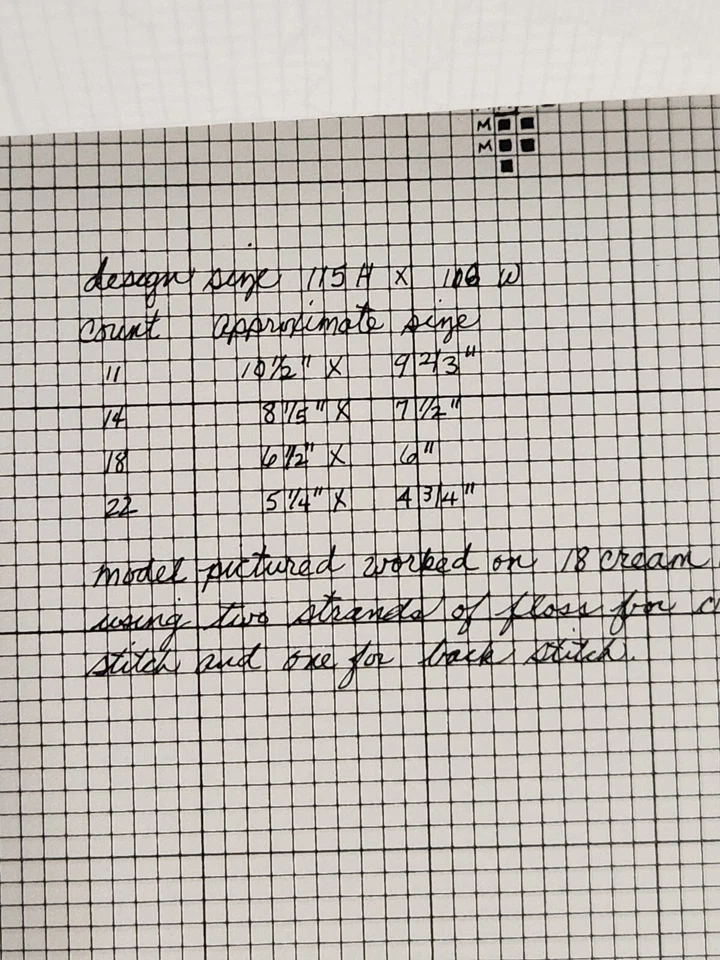 M
M
design size 115 H X 106 W
count approximate size
11 10 1/2" X 9 2/3"
14 8 1/5" X 7 1/2"
18 6 1/2" X 6"
22 5 1/4" X 4 3/4"
model pictured worked on 18 cream
using two strands of floss for
stitch and one for back stitch.